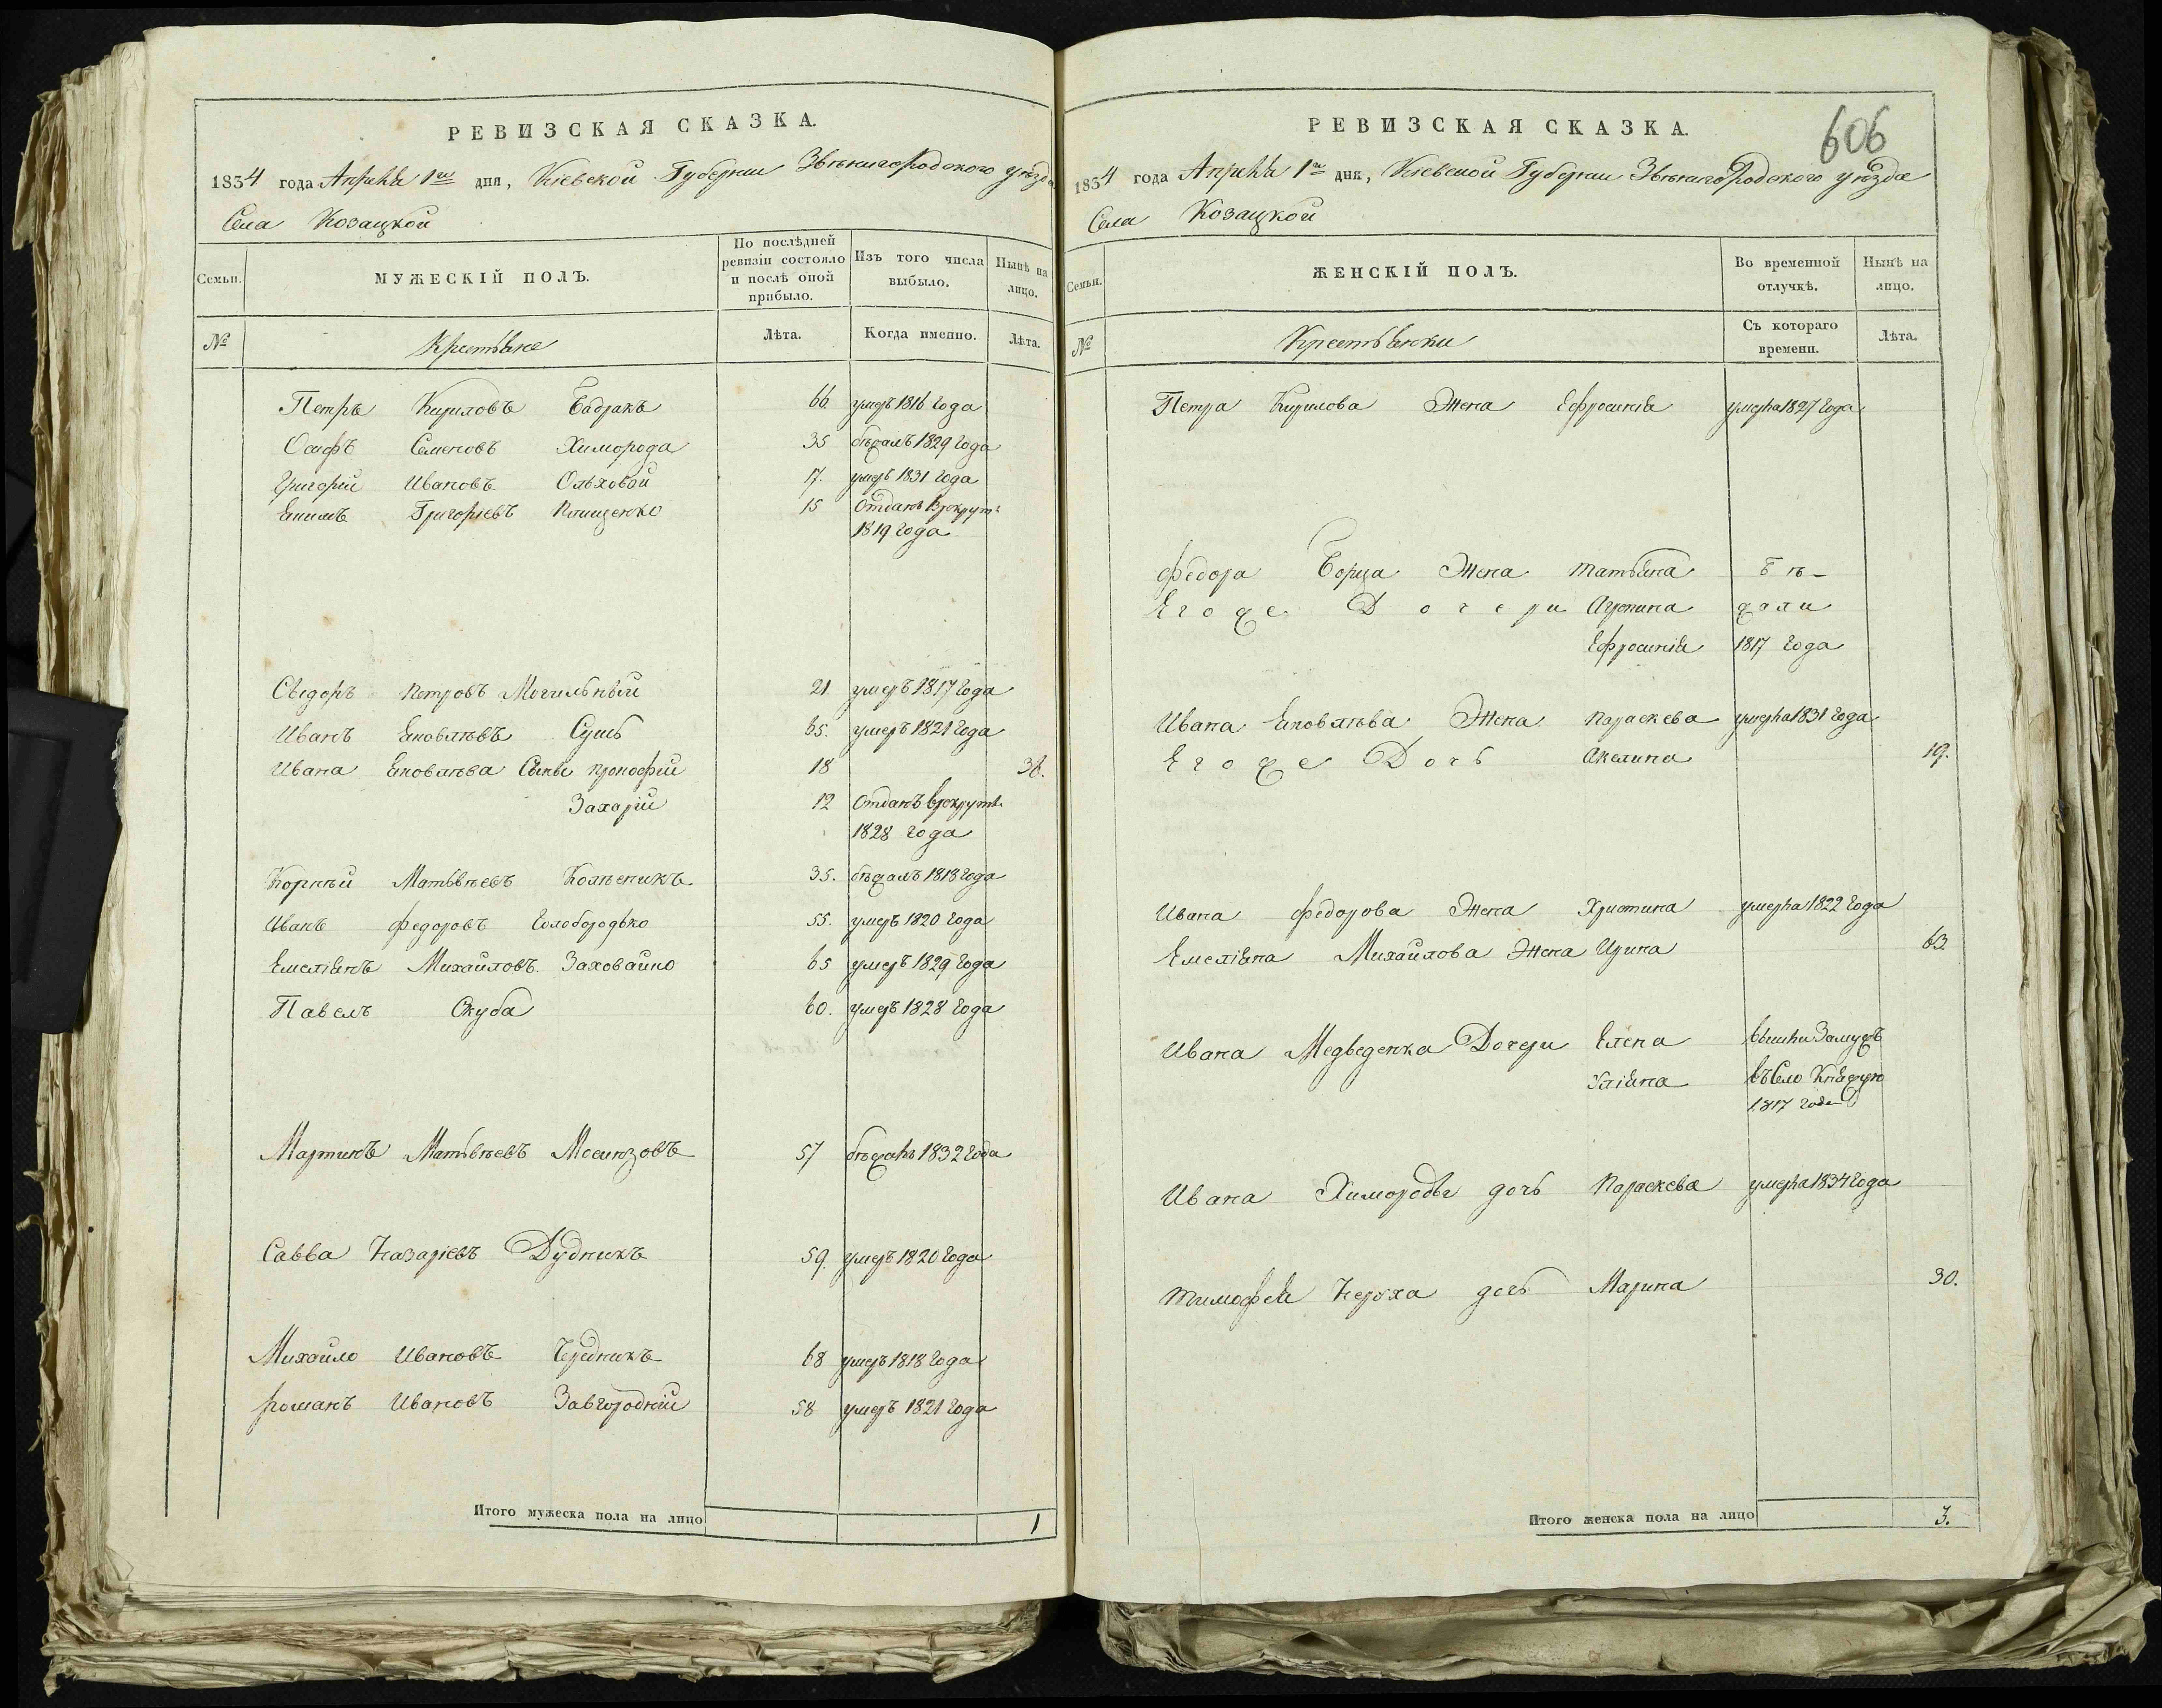 РЕВИЗСКАЯ СКАЗКА.
1834 года Апрѣля 1го дня, Кіевской Губерніи Звѣнигородского уѣзда
Села Козацкой
Семьи. МУЖЕСКІЙ ПОЛЪ. По послѣдней ревизіи состояло и послѣ оной прибыло. Изъ того числа выбыло. Нынѣ на лицо.
№ Крестьяне Лѣта. Когда именно. Лѣта.
Петръ Кириловъ Бадракъ 66. умеръ 1816 года
Осифъ Семеновъ Химорода 35 бѣжалъ 1829 года
Григорій Ивановъ Ольховой 17. умеръ 1831 года
Екимъ Григоріевъ Клищенко 15 отданъ врекрутъ
1819 года
Сыдоръ Петровъ Могильный 21 умеръ 1817 года
Иванъ Яковлѣвъ Сушъ 65. умеръ 1821 года
Ивана Яковлѣва Сыны Прокофій 18 36.
Захарій 12 отданъ врекрутъ
1828 года
Корнѣй Матвѣевъ Колѣсникъ 35. бѣжалъ 1818 года
Иванъ Федоровъ Голобородько 55. умеръ 1820 года
Емеліянъ Михайловъ Заховайло 65 умеръ 1829 года
Павелъ Скуба 60. умеръ 1828 года
Мартинъ Матвѣевъ 57 бѣжалъ 1832 года
Савва Назаріевъ Дудникъ 59. умеръ 1820 года
Михайло Ивановъ Чредникъ 68 умеръ 1818 года
Романъ Ивановъ Завгородній 58 умеръ 1821 года
Итого мужеска пола на лицо 1
606
РЕВИЗСКАЯ СКАЗКА.
1834 года Апрѣля 1го дня, Кіевской Губерніи Звѣнигородского уѣзда
Села Козацкой
Семьи. ЖЕНСКІЙ ПОЛЪ. Во временной отлучкѣ. Нынѣ на лицо.
№ Крестьянки Съ котораго времени. Лѣта.
Петра Кирилова Жена Ефросинія умерла 1827 года
Федора Борща Жена Татьяна бѣ-
Егоже Дочери Агрепина жали
Ефросинія 1817 года
Ивана Яковлѣва Жена Параскева умерла 1831 года
Егоже Дочь Акелина 19.
Ивана Федорова Жена Христина умерла 1822 года
Емеліяна Михайлова Жена Ирина 63.
Ивана Медведенка Дочери Елена вышли Замужъ
Уліяна въ Село Княжую
1817 года
Ивана Химороды дочь Параскева умерла 1834 года
Тимофея дочь Марина 30.
Итого женска пола на лицо 3.